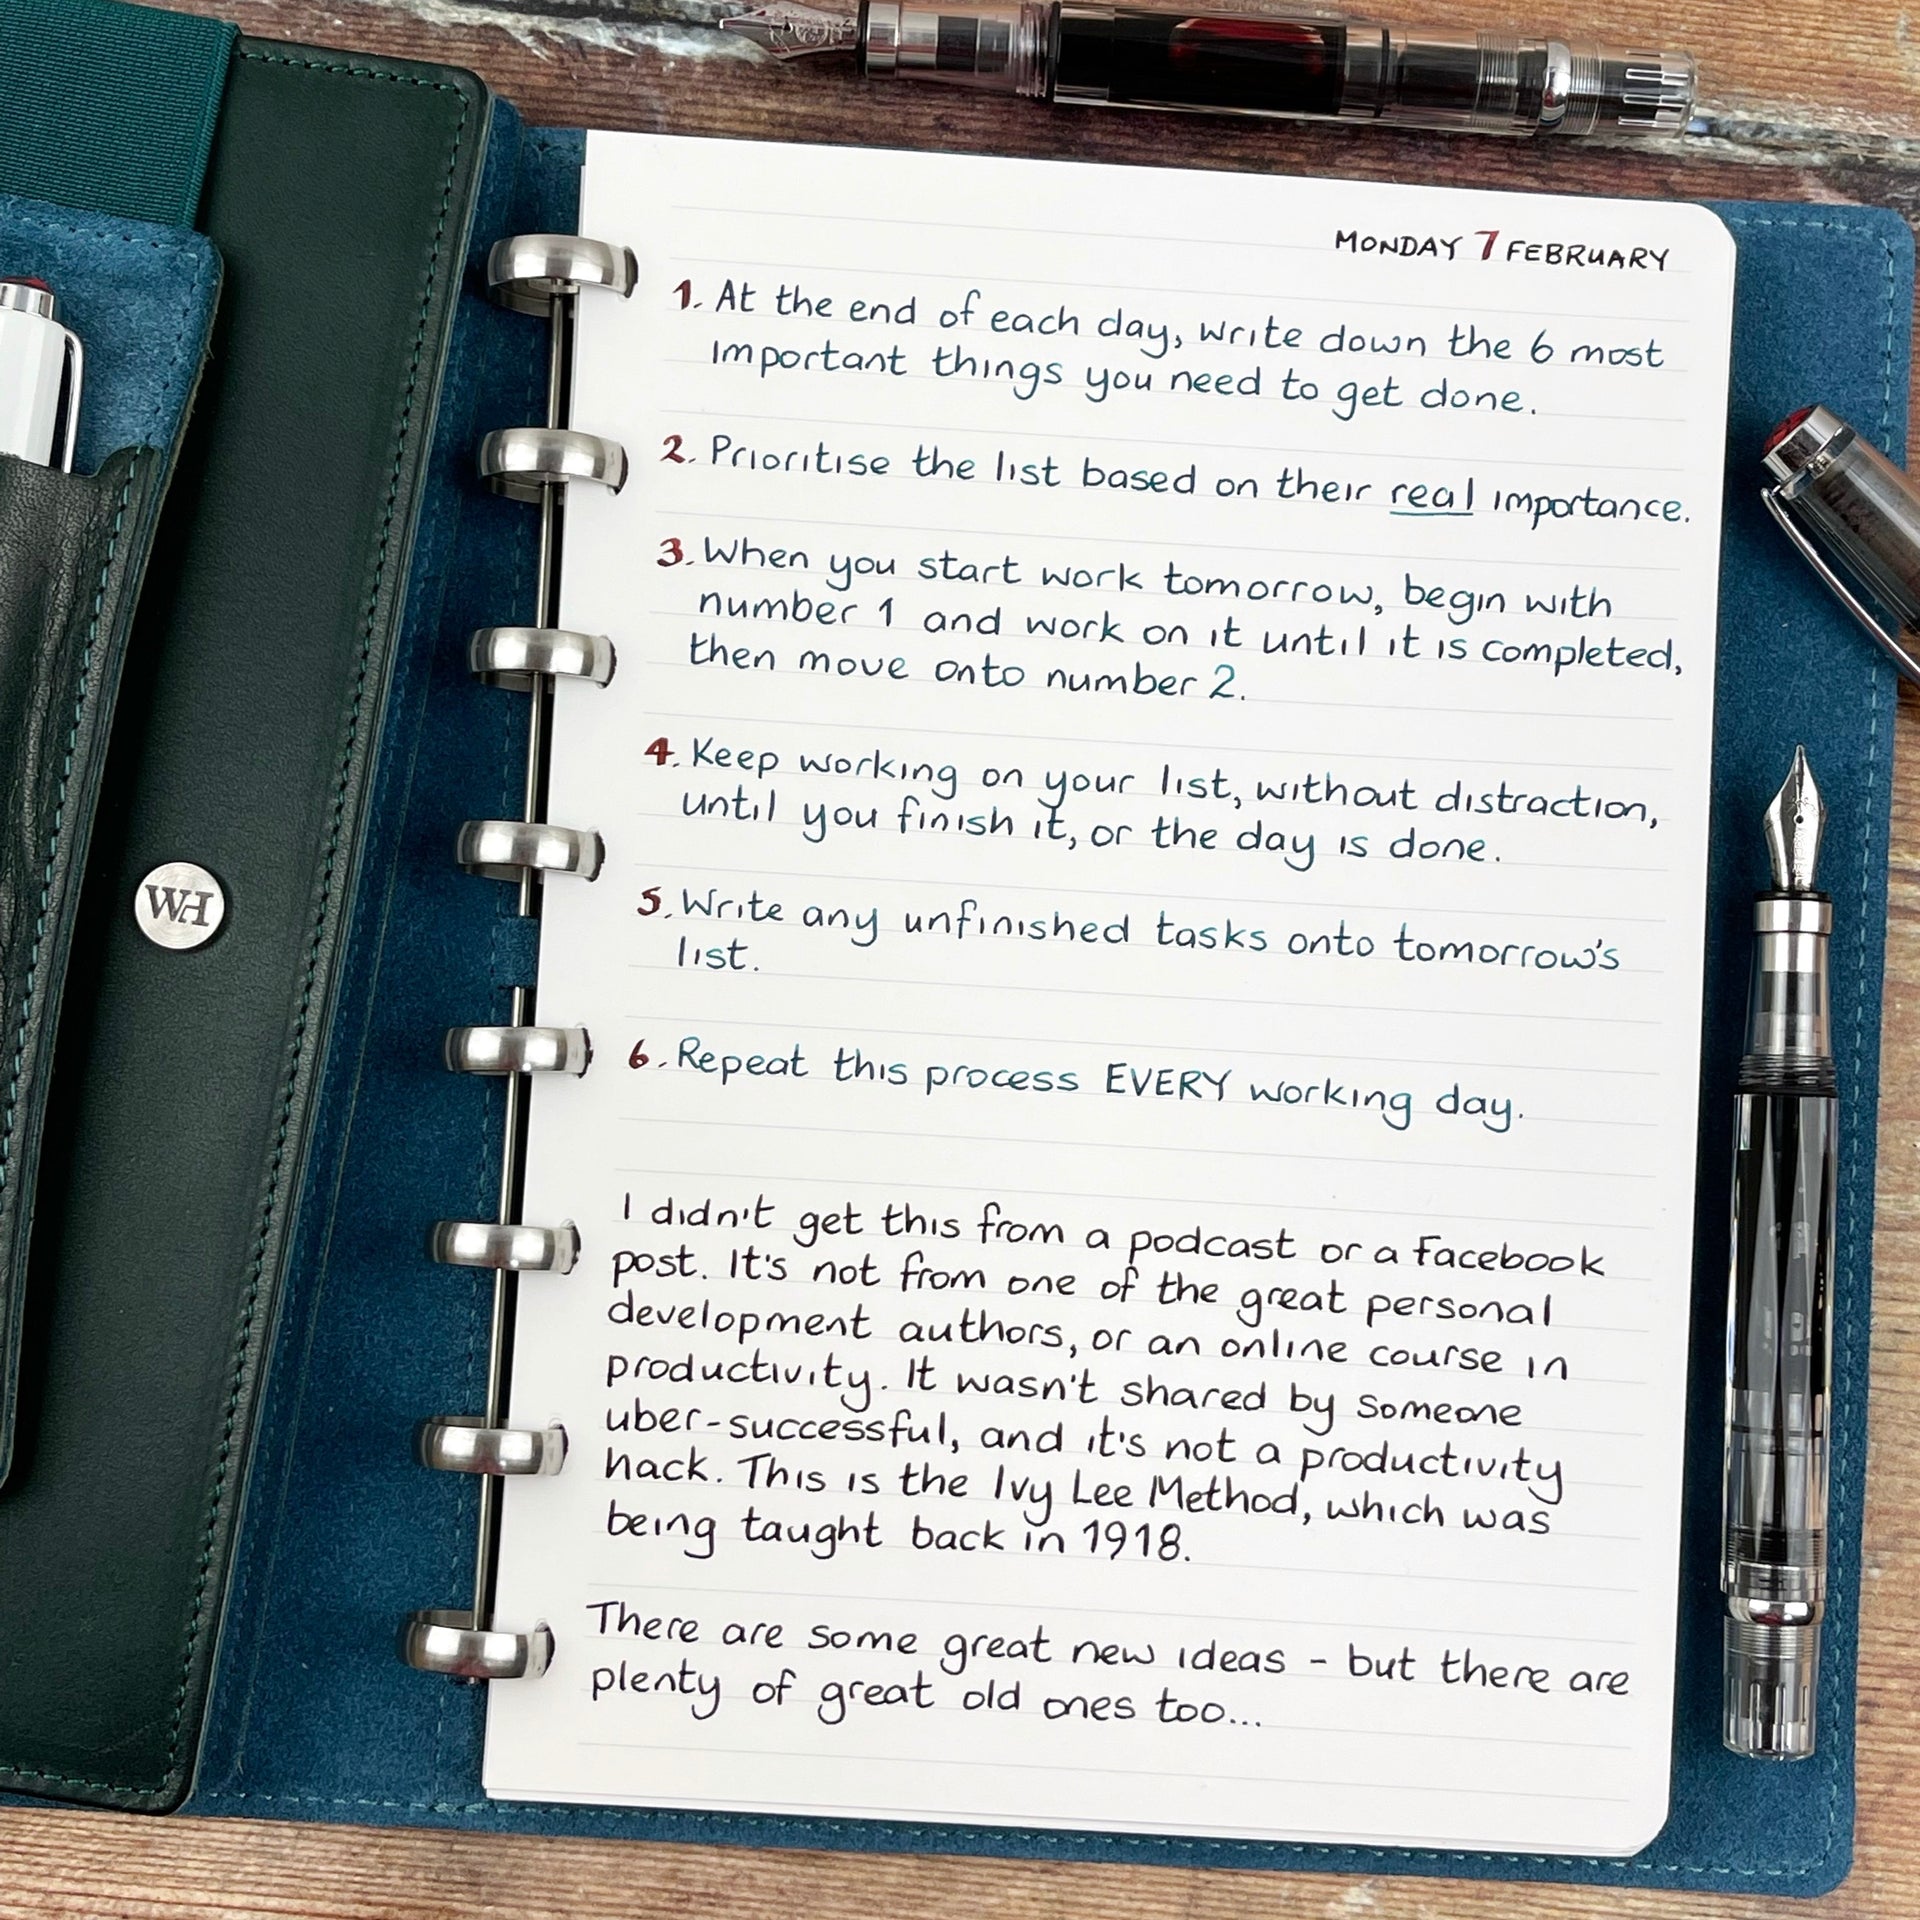 MONDAY 7 FEBRUARY
1. At the end of each day, write down the 6 most
important things you need to get done.
2. Prioritise the list based on their real importance.
3. When you start work tomorrow, begin with
number 1 and work on it until it is completed,
then move onto number 2.
4. Keep working on your list, without distraction,
until you finish it, or the day is done.
5. Write any unfinished tasks onto tomorrow's
list.
6. Repeat this process EVERY working day.
I didn't get this from a podcast or a Facebook
post. It's not from one of the great personal
development authors, or an online course in
productivity. It wasn't shared by someone
uber-successful, and it's not a productivity
hack. This is the Ivy Lee Method, which was
being taught back in 1918.
There are some great new ideas - but there are
plenty of great old ones too...
WH